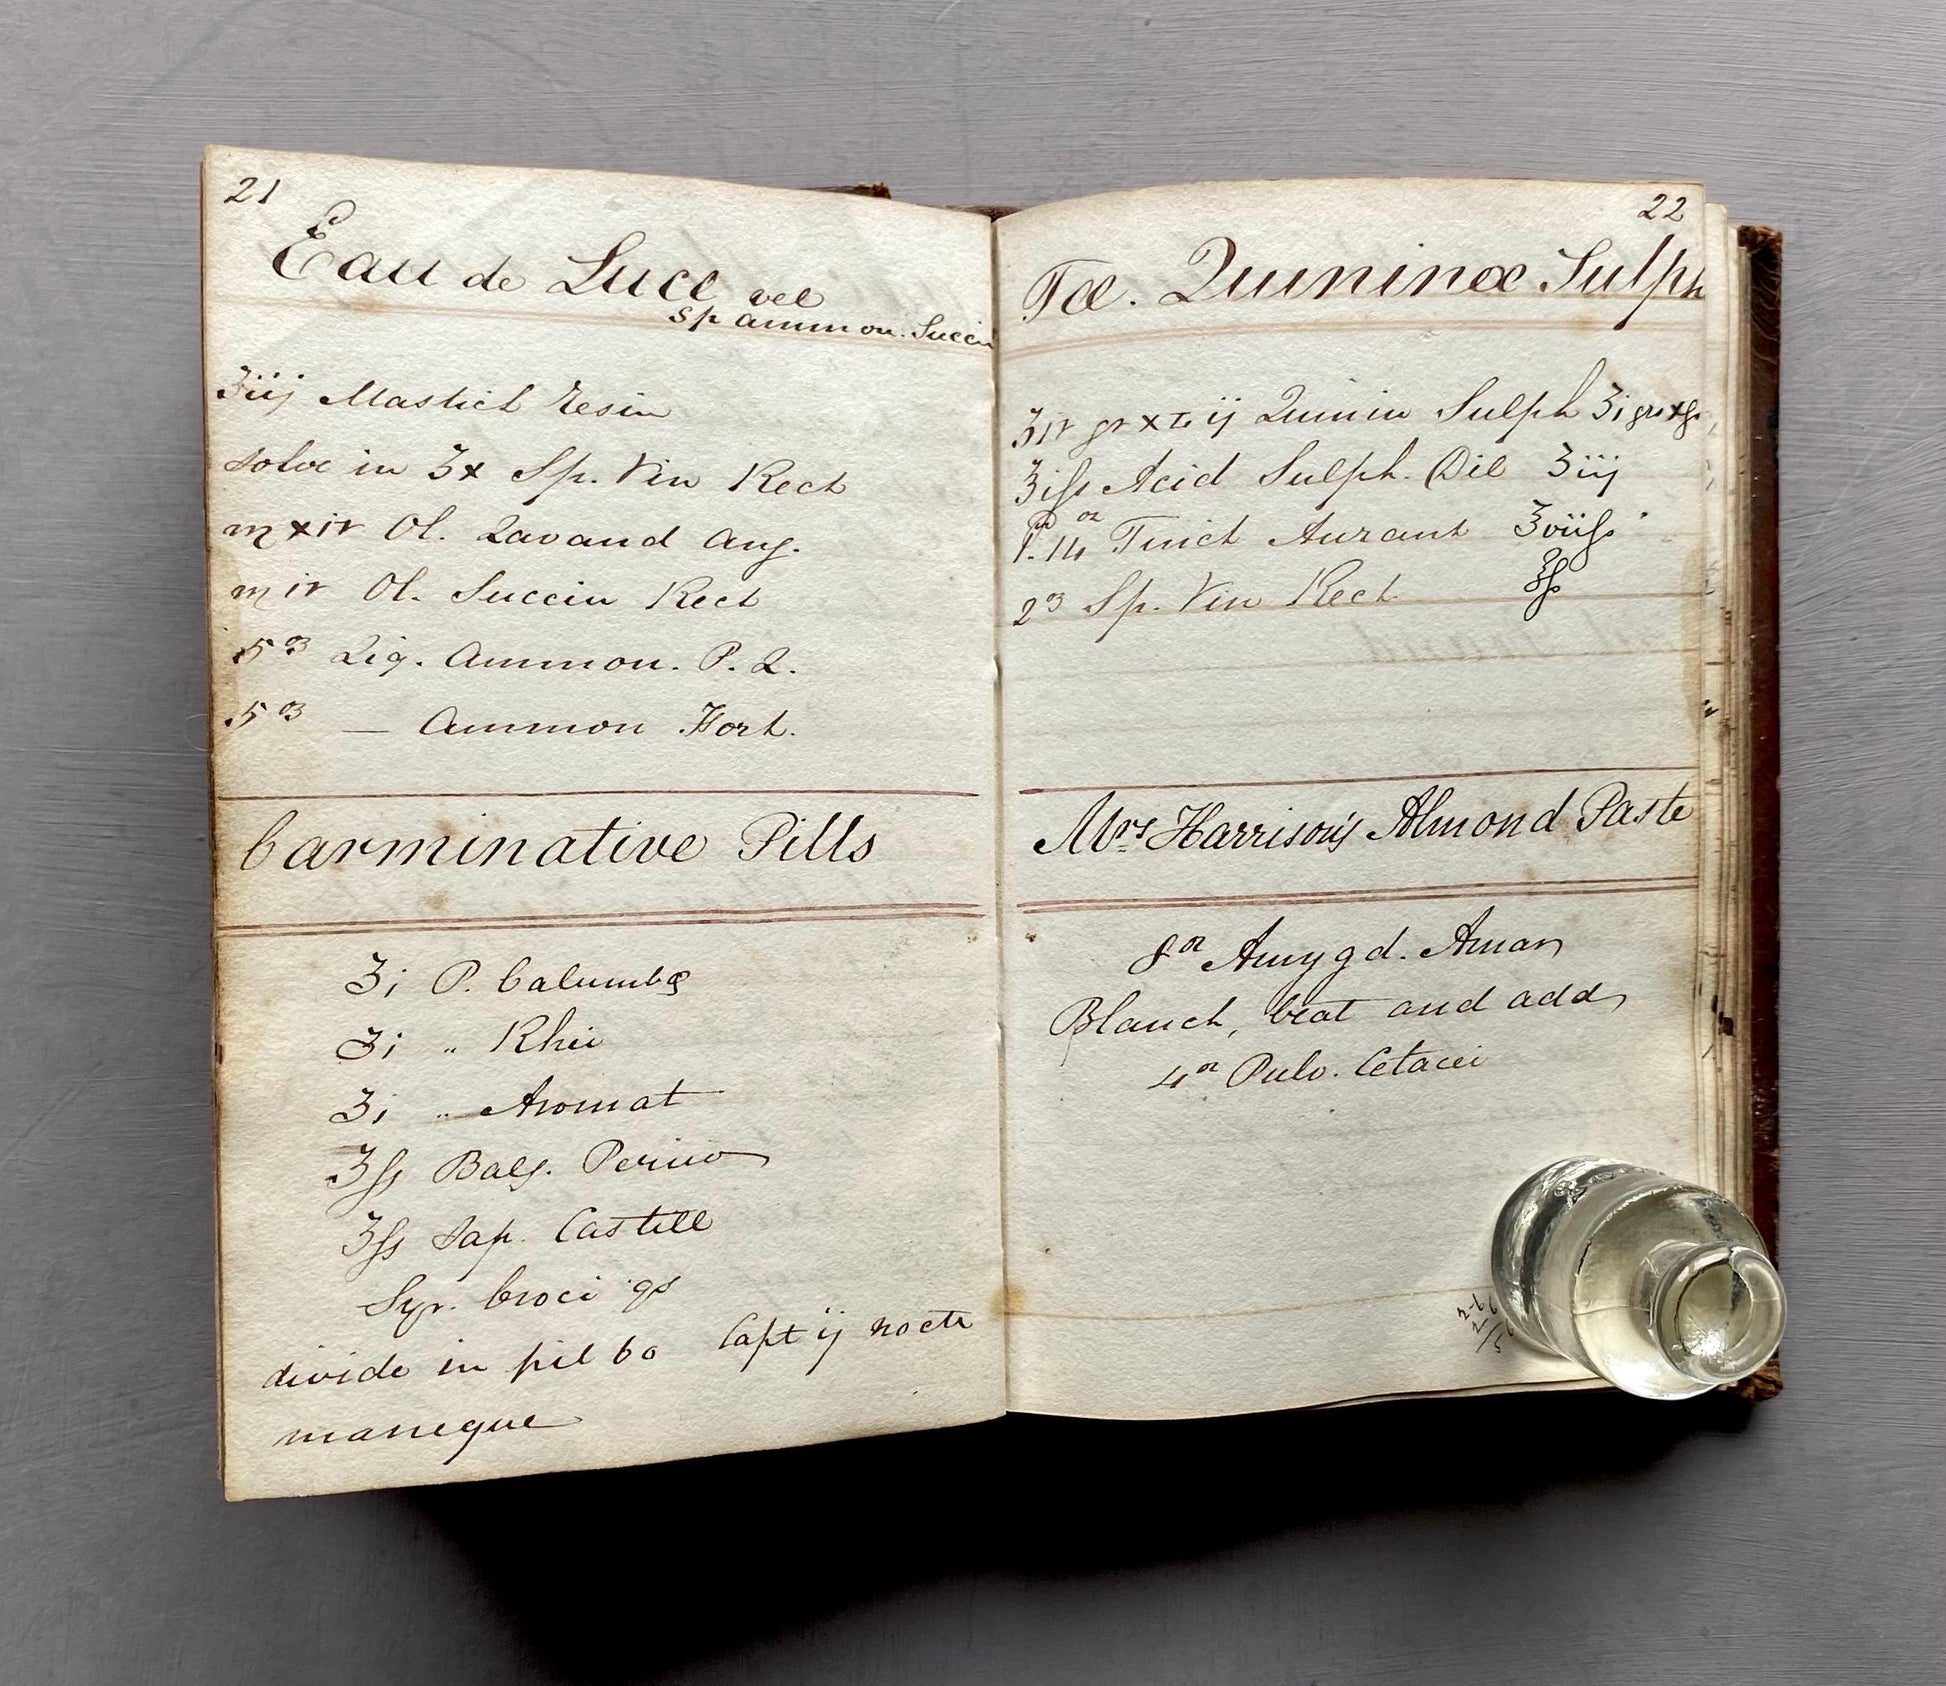 21
Eau de Luce vel
Sp ammon. Succin
ʒiij Mastich Resin
solve in ʒx Sp. Vin Rect
m xiv Ol. Lavand Ang.
m iv Ol. Succin Rect
5 oz Liq. Ammon. P. L.
5 oz — Ammon Fort.
Carminative Pills
ʒi P. Calumbæ
ʒi " Rhei
ʒi " Aromat
ʒſs Bals. Peruv
ʒſs Sap. Castill
Syr. Croci qs
divide in pil 60 Capt ij nocte
maneque
22
Tæ. Quininæ Sulph
ʒiv gr xLij Quinin Sulph ʒi grs
ʒiſs Acid Sulph. Dil ʒiij
P. 14 oz Tinct Aurant ℥viiſs
2 oz Sp. Vin Rect ℥ſs
Mrs Harrison's Almond Paste
8 oz Amygd. Amar
Blanch, beat and add
4 oz Pulv. Cetacei